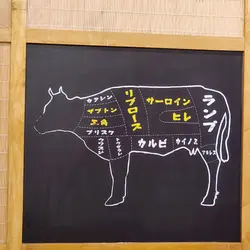 カタレン
ザブトン
三角
ブリスケ
ウデスジ
トウガラシ
リブロース
サーロイン
ヒレ
カルビ
カイノミ
ランプ